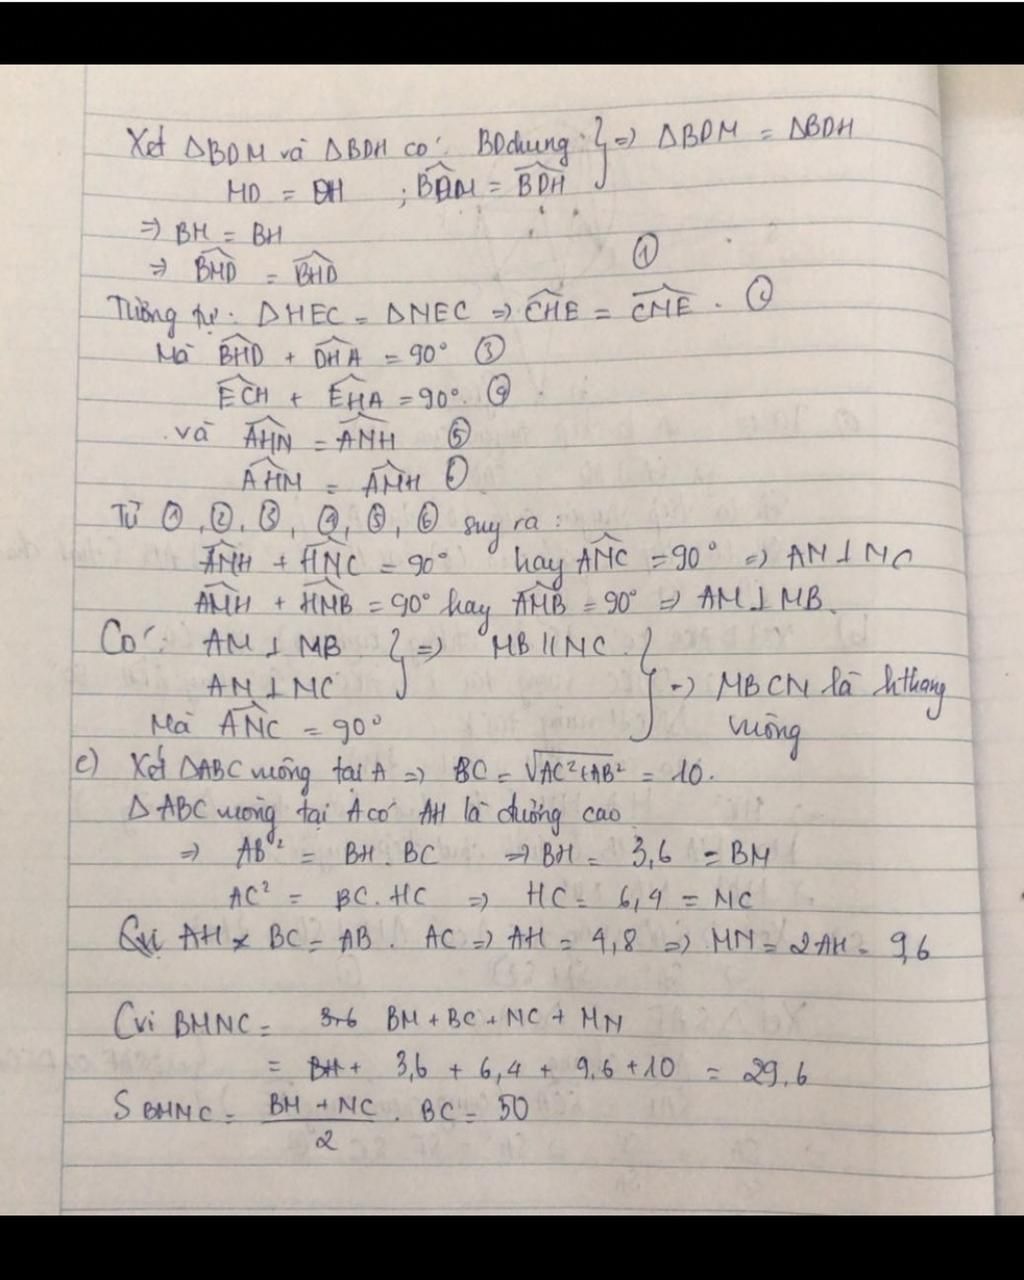 Xét ΔBDM và ΔBDH có: BD chung } => ΔBDM = ΔBDH
MD = DH ; BDM = BDH
=> BM = BH
=> BMD = BHD ①
Tương tự: ΔHEC = ΔNEC => CHE = CNE. ②
Mà BHD + DHA = 90° ③
ECH + EHA = 90°. ④
và AHN = ANH ⑤
AHM = AMH
Từ ①, ②, ③, ④, ⑤, ⑥ suy ra:
ANH + HNC = 90° hay ANC = 90° => AN ⊥ NC
AMH + HMB = 90° hay AMB = 90° => AM ⊥ MB.
Có: AM ⊥ MB } => MB // NC. } => MBCN là hthang
AN ⊥ NC
Mà ANC = 90° vuông
c) Xét ΔABC vuông tại A => BC = √AC²+AB² = 10.
Δ ABC vuông tại A có AH là đường cao
=> AB² = BH. BC => BH = 3,6 = BM
AC² = BC. HC => HC = 6,4 = NC
AH × BC = AB . AC => AH = 4,8 => MN = 2AH = 9,6
Cvi BMNC = BM + BC + NC + MN
= 3,6 + 6,4 + 9,6 + 10 = 29,6
S BMNC = BM + NC / 2 . BC = 50